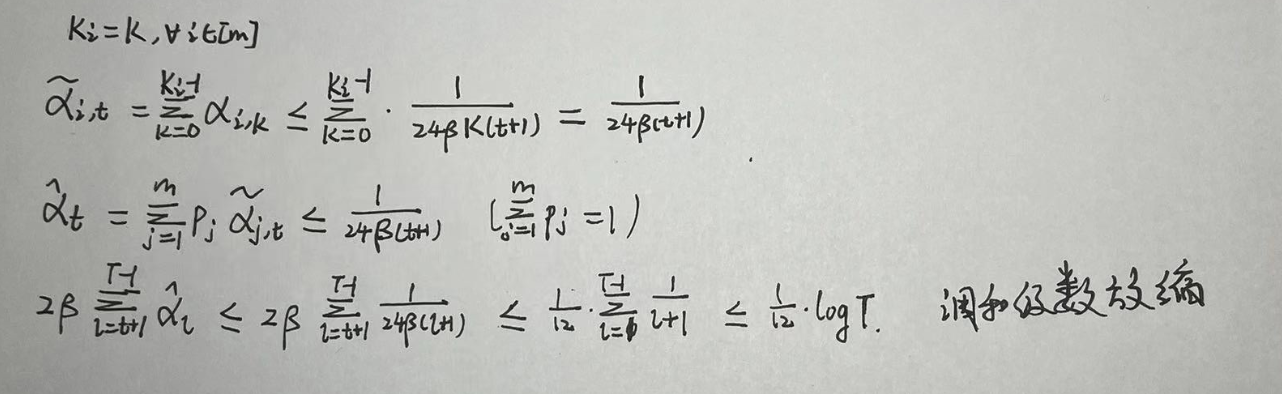 K_i = K, ∀ i ∈ [m]
α̃_{i,t} = Σ_{k=0}^{K_i-1} α_{i,k} ≤ Σ_{k=0}^{K_i-1} · 1/(24βK(t+1)) = 1/(24β(t+1))
α̂_t = Σ_{j=1}^{m} p_j α̃_{j,t} ≤ 1/(24β(t+1)) (Σ_{j=1}^{m} p_j = 1)
2β Σ_{l=t+1}^{T-1} α̂_l ≤ 2β Σ_{l=t+1}^{T-1} 1/(24β(l+1)) ≤ 1/12 · Σ_{l=}^{T-1} 1/(l+1) ≤ 1/12 · log T. 调和级数放缩